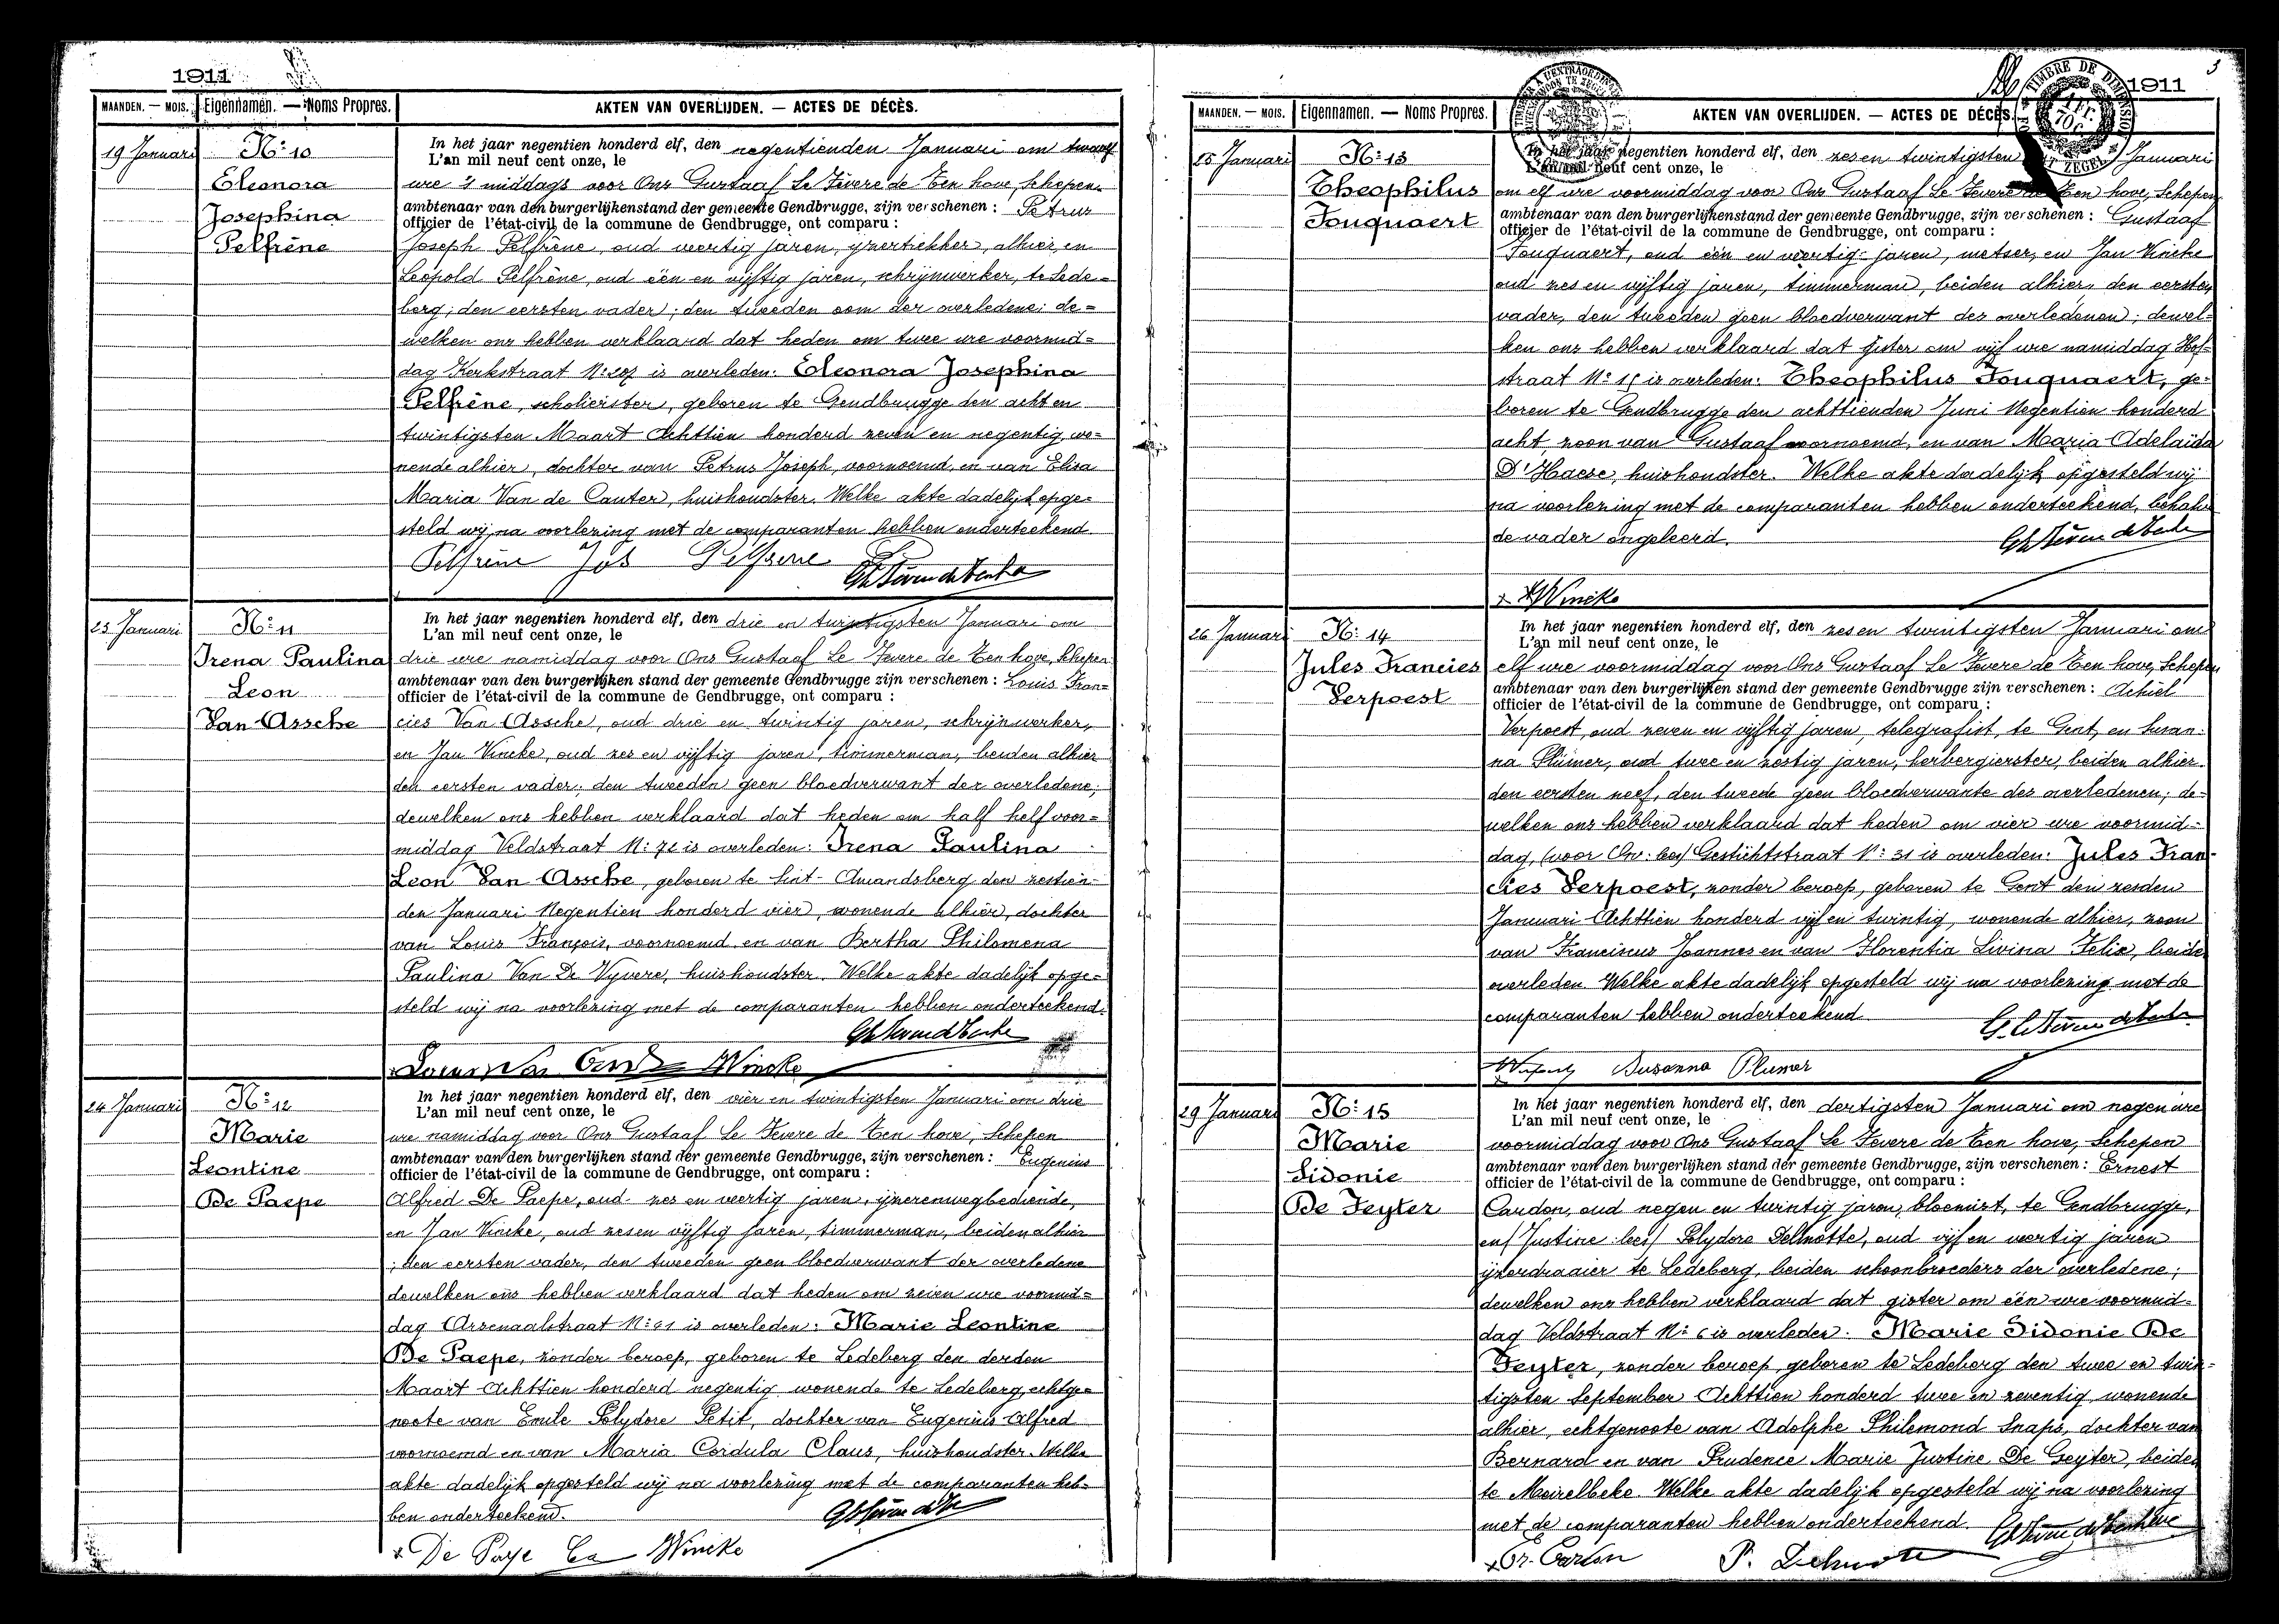 1911
MAANDEN. — MOIS. Eigennamen. — Noms Propres. AKTEN VAN OVERLIJDEN. — ACTES DE DÉCÈS.
19 Januari
No 10
Eleonora
Josephina
Pelfrène
In het jaar negentien honderd elf, den negentienden Januari om twaalf
L'an mil neuf cent onze, le
ure 's middags voor Ons Gustaaf Le Fevere de Ten hove, Schepen
ambtenaar van den burgerlijkenstand der gemeente Gendbrugge, zijn verschenen : Petrus
officier de l'état-civil de la commune de Gendbrugge, ont comparu :
Joseph Pelfrène, oud veertig jaren, ijzertrekker, alhier, en
Leopold Pelfrène, oud één en vijftig jaren, schrijnwerker, te Lede=
berg; den eersten vader; den tweeden oom der overledene; de=
welken ons hebben verklaard dat heden om twee ure voormid=
dag Kerkstraat No 207 is overleden: Eleonora Josephina
Pelfrène, scholierster, geboren te Gendbrugge den acht en
twintigsten Maart Achttien honderd zeven en negentig, wo=
nende alhier, dochter van Petrus Joseph, voornoemd, en van Elisa
Maria Van de Cauter, huishoudster. Welke akte dadelijk opge=
steld wij na voorlezing met de comparanten hebben onderteekend
Pelfrène Jos Pelfrene
23 Januari
No 11
Irena Paulina
Leon
Van Assche
In het jaar negentien honderd elf, den drie en twintigsten Januari om
L'an mil neuf cent onze, le
drie ure namiddag voor Ons Gustaaf Le Fevere de Ten hove, Schepen
ambtenaar van den burgerlijken stand der gemeente Gendbrugge zijn verschenen : Louis Fran=
officier de l'état-civil de la commune de Gendbrugge, ont comparu :
cies Van Assche, oud drie en twintig jaren, schrijnwerker,
en Jan Vincke, oud zes en vijftig jaren, timmerman, beiden alhier
den eersten vader; den tweeden geen bloedverwant der overledene;
dewelken ons hebben verklaard dat heden om half helf voor=
middag Veldstraat No 72 is overleden: Irena Paulina
Leon Van Assche, geboren te Sint-Amandsberg den zestien=
den Januari Negentien honderd vier, wonende alhier, dochter
van Louis François, voornoemd en van Bertha Philomena
Paulina Van De Vyvere, huishoudster. Welke akte dadelijk opge=
steld wij na voorlezing met de comparanten hebben onderteekend.
Wincke
24 Januari
No 12
Marie
Leontine
De Paepe
In het jaar negentien honderd elf, den vier en twintigsten Januari om drie
L'an mil neuf cent onze, le
ure namiddag voor Ons Gustaaf Le Fevere de Ten hove, Schepen
ambtenaar van den burgerlijken stand der gemeente Gendbrugge, zijn verschenen : Eugenius
officier de l'état-civil de la commune de Gendbrugge, ont comparu :
Alfred De Paepe, oud zes en veertig jaren, ijzerenwegbediende,
en Jan Vincke, oud zes en vijftig jaren, timmerman, beiden alhier
; den eersten vader, den tweeden geen bloedverwant der overledene
dewelken ons hebben verklaard dat heden om zeven ure voormid=
dag Arsenaalstraat No 41 is overleden: Marie Leontine
De Paepe, zonder beroep, geboren te Ledeberg den derden
Maart Achttien honderd negentig wonende te Ledeberg, echtge=
noote van Emile Polydore Petit, dochter van Eugenius Alfred
voornoemd en van Maria Cordula Claus, huishoudster. Welke
akte dadelijk opgesteld wij na voorlezing met de comparanten heb=
ben onderteekend.
De Paepe Wincke
3
1911
MAANDEN. — MOIS. Eigennamen. — Noms Propres. AKTEN VAN OVERLIJDEN. — ACTES DE DÉCÈS.
25 Januari
No 13
Theophilus
Fouquaert
In het jaar negentien honderd elf, den zes en twintigsten Januari
L'an mil neuf cent onze, le
om elf ure voormiddag voor Ons Gustaaf Le Fevere de Ten hove, Schepen
ambtenaar van den burgerlijkenstand der gemeente Gendbrugge, zijn verschenen : Gustaaf
officier de l'état-civil de la commune de Gendbrugge, ont comparu :
Fouquaert, oud één en veertig jaren, metser, en Jan Vincke
oud zes en vijftig jaren, timmerman, beiden alhier, den eersten
vader, den tweeden geen bloedverwant des overledenen; dewel=
ken ons hebben verklaard dat gister om vijf ure namiddag Hof=
straat No 15 is overleden: Theophilus Fouquaert, ge=
boren te Gendbrugge den achttienden Juni Negentien honderd
acht, zoon van Gustaaf voornoemd, en van Maria Adelaïda
D'Haese, huishoudster. Welke akte dadelijk opgesteld wij
na voorlezing met de comparanten hebben onderteekend, behalve
de vader ongeleerd.
Wincke
26 Januari
No 14
Jules Francies
Verpoest
In het jaar negentien honderd elf, den zes en twintigsten Januari om
L'an mil neuf cent onze, le
elf ure voormiddag voor Ons Gustaaf Le Fevere de Ten hove, Schepen
ambtenaar van den burgerlijken stand der gemeente Gendbrugge zijn verschenen : Achiel
officier de l'état-civil de la commune de Gendbrugge, ont comparu :
Verpoest, oud zeven en vijftig jaren, telegrafist, te Gent, en Susan=
na Plümer, oud twee en zestig jaren, herbergierster, beiden alhier
den eersten neef, den tweede geen bloedverwante des overledenen; de=
welken ons hebben verklaard dat heden om vier ure voormid=
dag, (voor Ov: lees) Gestichtstraat No 31 is overleden: Jules Fran=
cies Verpoest, zonder beroep, geboren te Gent den zesden
Januari Achttien honderd vijf en twintig, wonende alhier, zoon
van Franciscus Joannes en van Florentia Livina Felix, beide
overleden. Welke akte dadelijk opgesteld wij na voorlezing met de
comparanten hebben onderteekend
Susanna Plumer
29 Januari
No 15
Marie
Sidonie
De Feyter
In het jaar negentien honderd elf, den dertigsten Januari om negen ure
L'an mil neuf cent onze, le
voormiddag voor Ons Gustaaf Le Fevere de Ten hove, Schepen
ambtenaar van den burgerlijken stand der gemeente Gendbrugge, zijn verschenen : Ernest
officier de l'état-civil de la commune de Gendbrugge, ont comparu :
Cardon, oud negen en twintig jaren, bloemist, te Gendbrugge,
en (Justine lees) Polydore Delmotte, oud vijf en veertig jaren
ijzerdraaier te Ledeberg, beiden schoonbroeders der overledene;
dewelken ons hebben verklaard dat gister om één ure voormid=
dag Veldstraat No 6 is overleden: Marie Sidonie De
Feyter, zonder beroep, geboren te Ledeberg den twee en twin=
tigsten September Achttien honderd twee en zeventig wonende
alhier, echtgenoote van Adolphe Philemond Snaps, dochter van
Bernard en van Prudence Marie Justine De Geyter, beide
te Meirelbeke. Welke akte dadelijk opgesteld wij na voorlezing
met de comparanten hebben onderteekend.